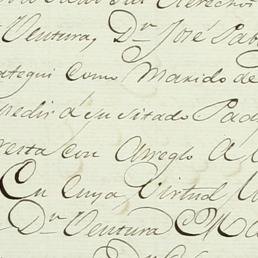 Derechos
Ventura, Dn José Pab
ategui como Marido de
pedir a su sitado Pad
resta con Arreglo a
En cuya Virtud
Dn Ventura